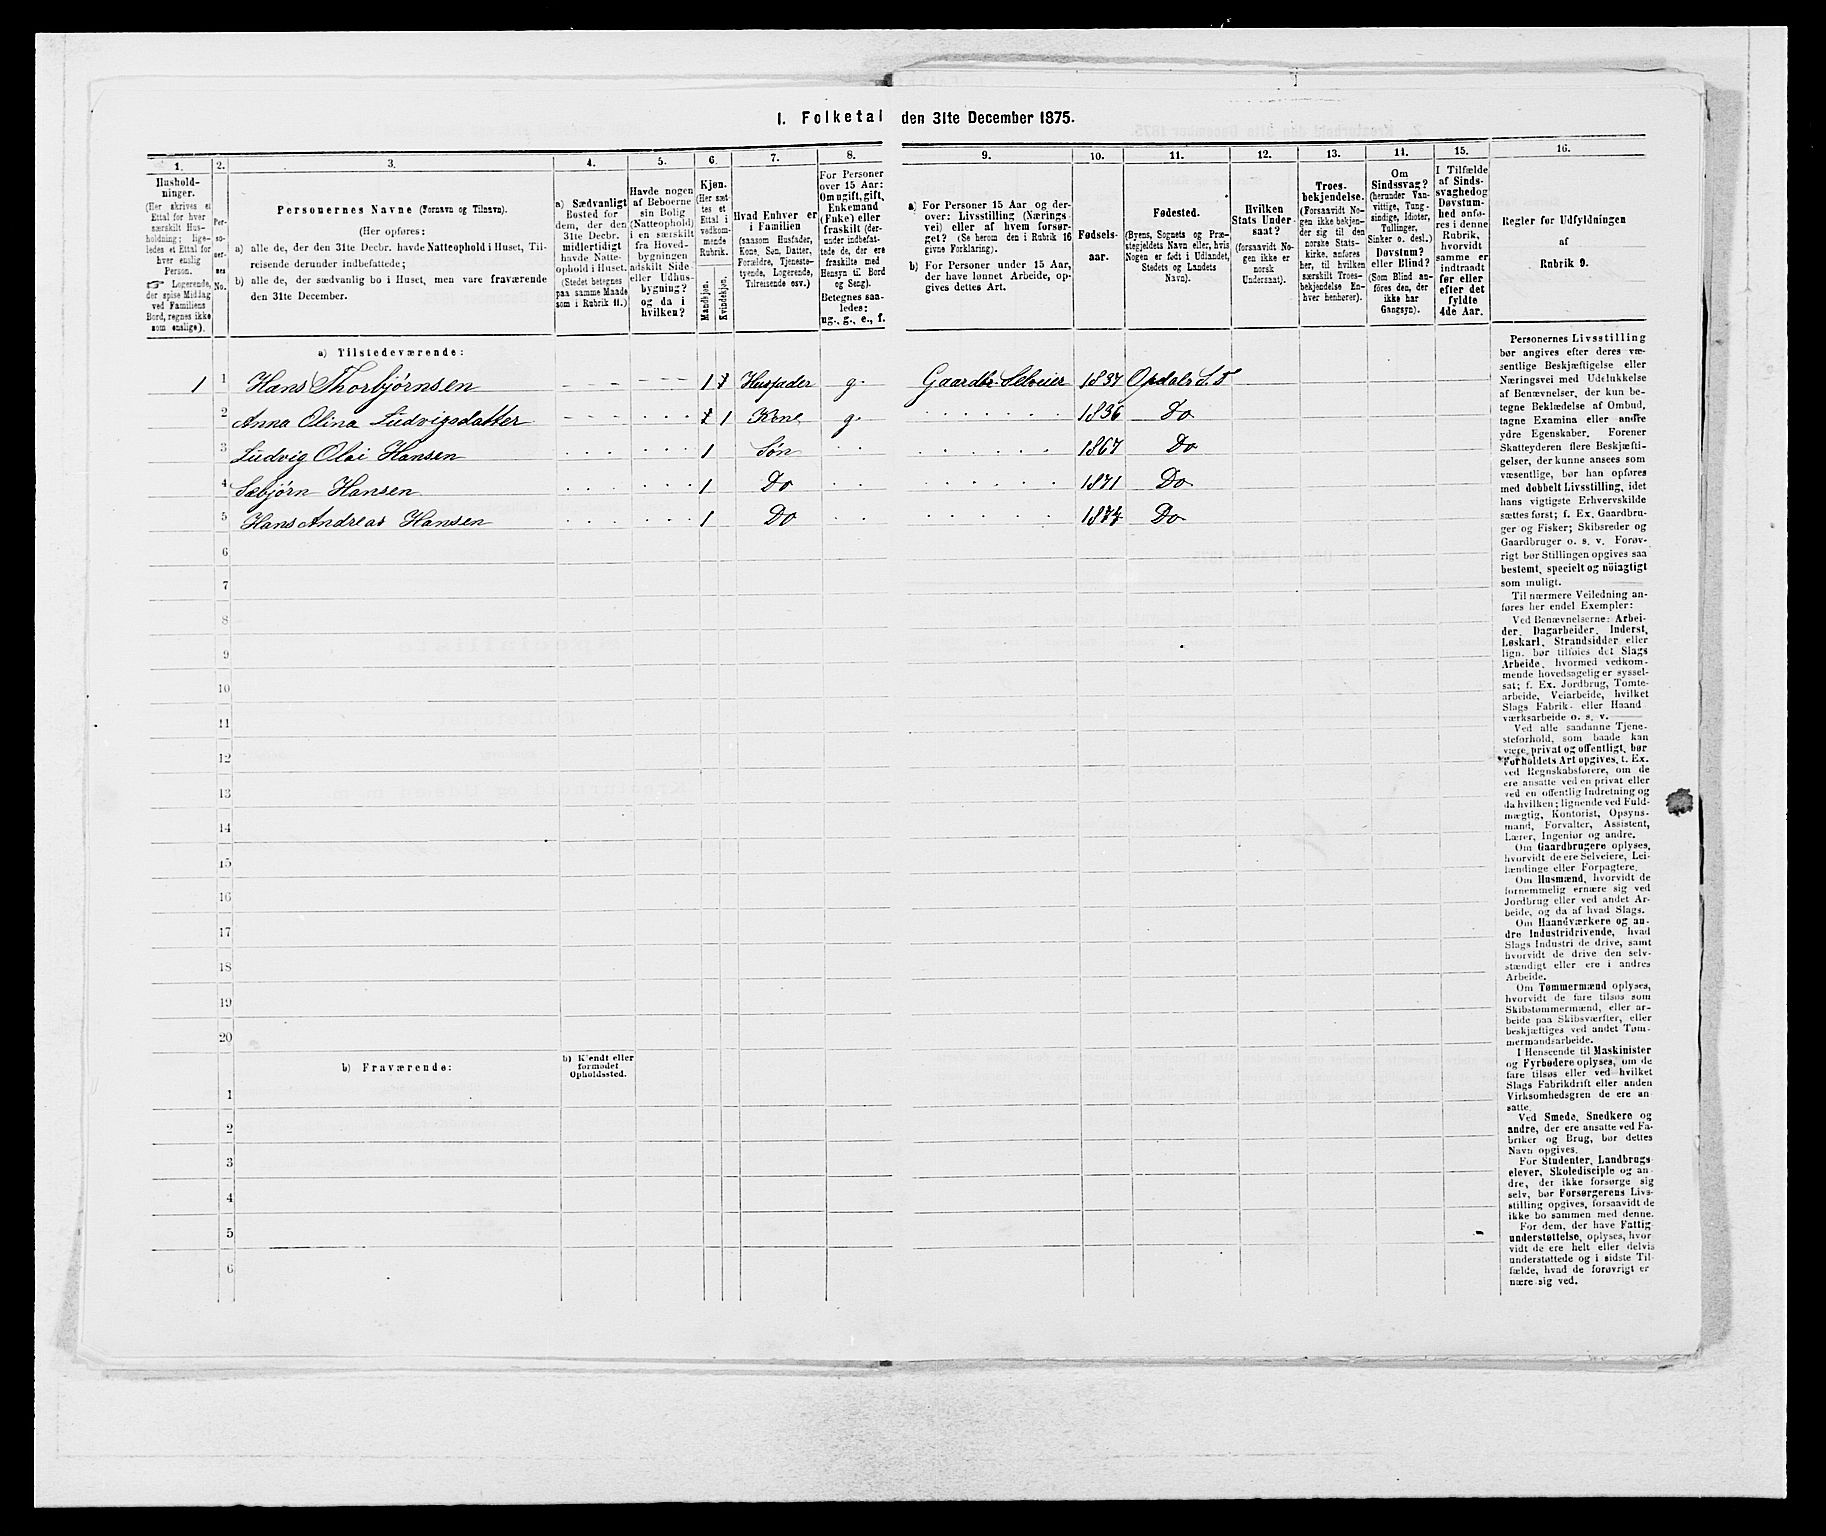 I. Folketal den 31te December 1875.
1. 2. 3. 4. 5. 6. 7. 8. 9. 10. 11. 12. 13. 14. 15. 16.
Hushold-
ninger.
(Her skrives et
Ettal for hver
særskilt Hus-
holdning; lige-
ledes et Ettal for
hver enslig
Person.
☞ Logerende,
der spise Middag
ved Familiens
Bord, regnes ikke
som enslige).
Per-
so-
ner-
nes
No.
Personernes Navne (Fornavn og Tilnavn).
(Her opføres:
a) alle de, der den 31te Decbr. havde Natteophold i Huset, Til-
reisende derunder indbefattede;
b) alle de, der sædvanlig bo i Huset, men vare fraværende
den 31te December.
a) Sædvanligt
Bosted for
dem, der den
31te Decbr.
midlertidigt
havde Natte-
ophold i Huset.
(Stedet betegnes
paa samme Maade
som i Rubrik 11.)
Havde nogen
af Beboerne
sin Bolig
(Natteophold)
i en særskilt
fra Hoved-
bygningen
adskilt Side-
eller Udhus-
bygning?
og da i
hvilken?
Kjøn.
(Her sæt-
tes et
Ettal i
vedkom-
mende
Rubrik.
Mandkjøn.
Kvindekjøn.
Hvad Enhver er
i Familien
(saasom Husfader,
Kone, Søn, Datter,
Forældre, Tjeneste-
tyende, Logerende,
Tilreisende osv.)
For Personer
over 15 Aar:
Om ugift, gift,
Enkemand
(Enke) eller
fraskilt (der-
under indbefat-
tede de, der ere
fraskilte med
Hensyn til Bord
og Seng).
Betegnes saa-
ledes:
ug., g., e., f.
a) For Personer 15 Aar og der-
over: Livsstilling (Nærings-
vei) eller af hvem forsør-
get? (Se herom den i Rubrik 16
givne Forklaring).
b) For Personer under 15 Aar,
der have lønnet Arbeide, op-
gives dettes Art.
Fødsels-
aar.
Fødested.
(Byens, Sognets og Præ-
stegjeldets Navn eller, hvis
Nogen er født i Udlandet,
Stedets og Landets
Navn).
Hvilken
Stats Under-
saat?
(forsaavidt No-
gen ikke er
norsk
Undersaat).
Troes-
bekjendelse.
(Forsaavidt No-
gen ikke bekjen-
der sig til den
norske Stats-
kirke, anføres
her, til hvilken
særskilt Troes-
bekjendelse En-
hver henhører).
Om
Sindssvag?
(herunder Van-
vittige, Tung-
sindige, Idioter,
Tullinger,
Sinker o. desl.)
Døvstum?
eller Blind?
(Som Blind an-
føres den, der
ikke har
Gangsyn).
I Tilfælde
af Sinds-
svaghed og
Døvstum-
hed anfø-
res i denne
Rubrik,
hvorvidt
samme er
indtraadt
før eller
efter det
fyldte
4de Aar.
Regler for Udfyldningen
af
Rubrik 9.
a) Tilstedeværende:
1 1 Hans Thorbjørnsen 1 Husfader g. Gaardbr. Selveier 1837 Opdals S. T
2 Anna Olina Ludvigsdatter 1 Kone g. 1836 Do
3 Ludvig Olai Hansen 1 Søn 1867 Do
4 Sæbjørn Hansen 1 Do 1871 Do
5 Hans Andreas Hansen 1 Do Do
6
7
8
9
10
11
12
13
14
15
16
17
18
19
20
b) Fraværende:
b) Kjendt eller
formodet
Opholdssted.
1
2
3
4
5
6
Personernes Livsstilling
bør angives efter deres væ-
sentlige Beskjæftigelse eller
Næringsvei med Udelukkelse
af Benævnelser, der kun be-
tegne Beklædelse af Ombud,
tagne Examina eller andre
ydre Egenskaber. Forener
Skatteyderen flere Beskjæfti-
gelser, der kunne ansees som
væsentlige, bør han opføres
med dobbelt Livsstilling, idet
hans vigtigste Erhvervskilde
sættes først; f. Ex. Gaardbru-
ger og Fisker; Skibsreder og
Gaardbruger o. s. v. Forøv-
rigt bør Stillingen opgives saa
bestemt, specielt og nöiagtigt
som muligt.
Til nærmere Veiledning an-
føres her endel Exempler:
Ved Benævnelserne: Arbei-
der, Dagarbeider, Inderst,
Løskarl, Strandsidder eller
lign. bør tilføies det Slags
Arbeide, hvormed vedkom-
mende hovedsagelig er syssel-
sat; f. Ex. Jordbrug, Tomte-
arbeide, Veiarbeide, hvilket
Slags Fabrik- eller Haand
værksarbeide o. s. v.
Ved alle saadanne Tjene-
steforhold, som baade kan
være privat og offentligt, bør
Forholdets Art opgives, t. Ex.
ved Regnskabsførere, om de
ere ansatte ved en privat eller
ved en offentlig Indretning og
da hvilken; lignende ved Fuld-
mægtig, Kontorist, Opsyns-
mand, Forvalter, Assistent,
Lærer, Ingeniør og andre.
Om Gaardbrugere oplyses,
hvorvidt de ere Selveiere, Lei-
lændinge eller Forpagtere.
Om Husmænd, hvorvidt de
fornemmelig ernære sig ved
Jordbrug eller ved andet Ar-
beide, og da af hvad Slags.
Om Haandværkere og an-
dre Industridrivende, hvad
Slags Industri de drive, samt
hvorvidt de drive den selv-
stændigt eller ere i andres
Arbeide.
Om Tømmermænd oplyses,
hvorvidt de fare tilsøs som
Skibstømmermænd, eller ar-
beide paa Skibsværfter, eller
beskjæftiges ved andet Tøm-
mermandsarbeide.
I Henseende til Maskinister
og Fyrbødere oplyses, om de
fare tilsøs eller ved hvilket
Slags Fabrikdrift eller anden
Virksomhedsgren de ere an-
satte.
Ved Smede, Snedkere og
andre, der ere ansatte ved Fa-
briker og Brug, bør dettes
Navn opgives.
For Studenter, Landbrugs-
elever, Skoledisciple og an-
dre, der ikke forsørge sig
selv, bør Forsørgerens Livs-
stilling opgives, forsaavidt de
ikke bo sammen med denne.
For dem, der have Fattig-
understøttelse, oplyses, hvor-
vidt de ere helt eller delvis
understøttede og i sidste Til-
fælde, hvad de forøvrigt er
nære sig ved.